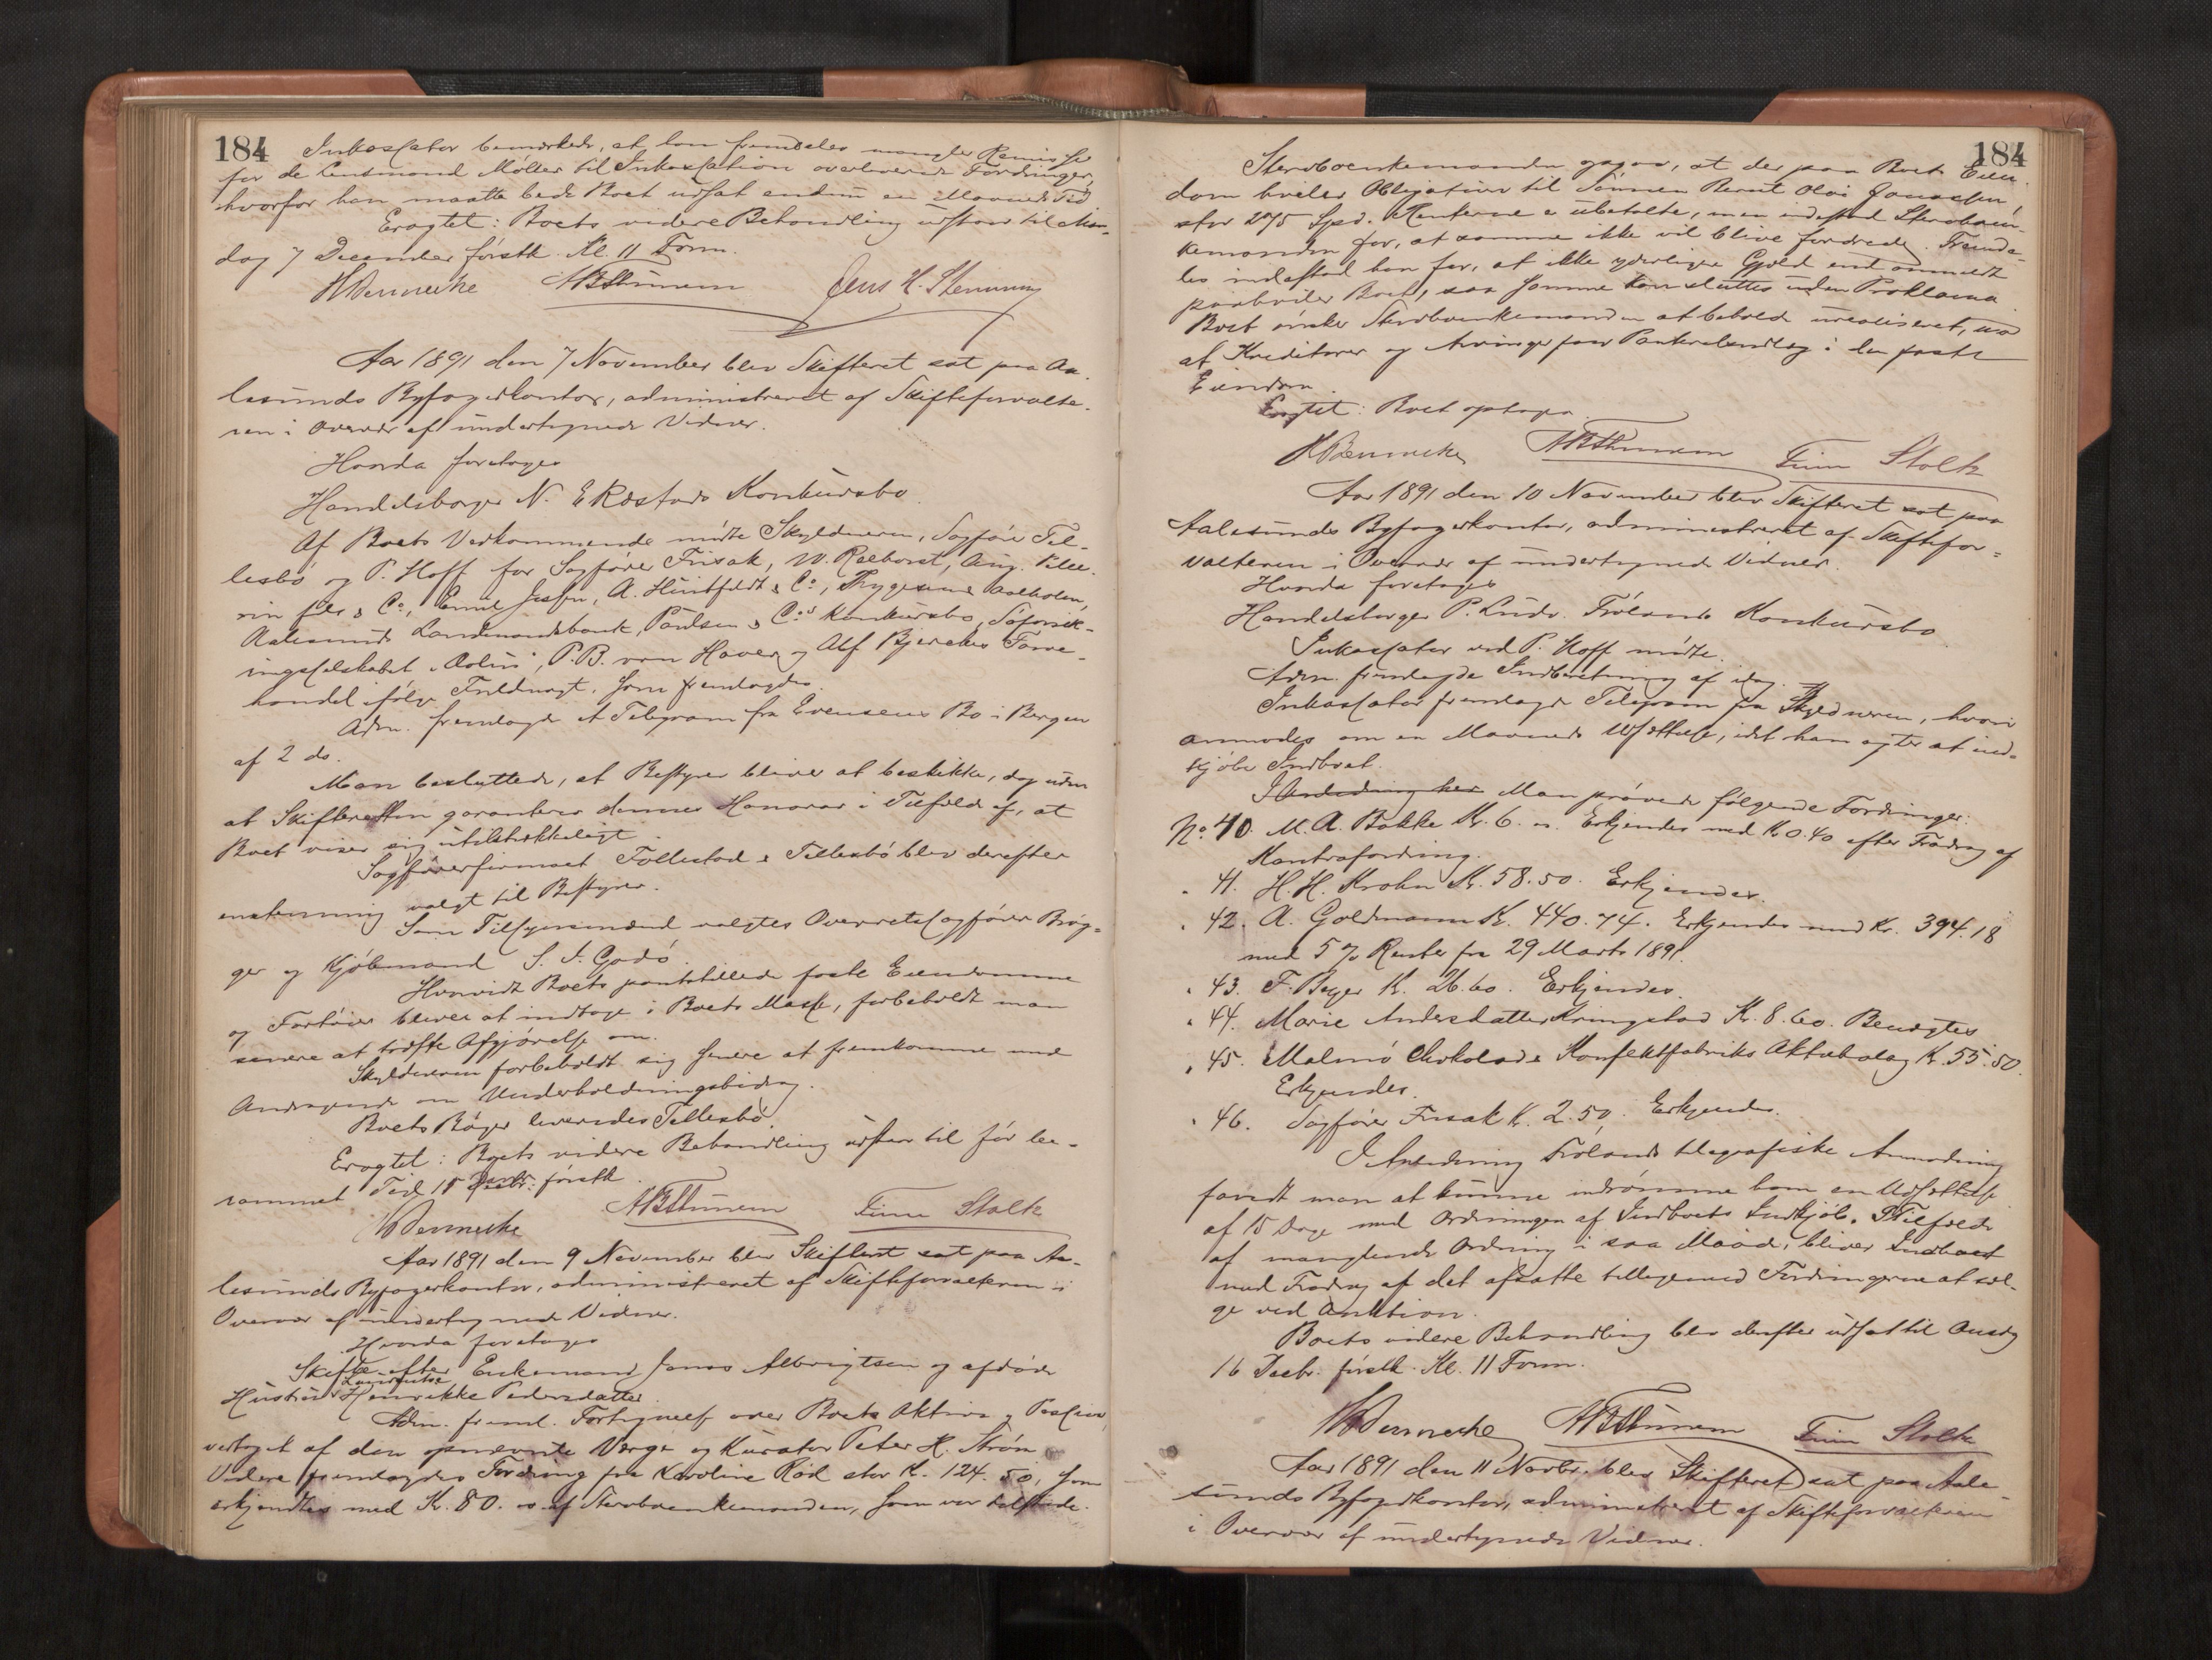 184
Inkassator bemærkede, at han fremdeles mangler Remisser
for de Lensmand Møller til Inkassation overleverede Fordringer,
hvorfor han maatte bede Boet udsat endnu en Maaneds Tid
Eragtet: Boets videre Behandling udstaar til Man-
dag 7 December førstk. Kl. 11 Form.
Aar 1891 den 7 November blev Skifteret sat paa Aa-
lesunds Byfogedkontor, administreret af Skifteforvalte-
ren i Overvær af undertegnede Vidner.
Hvorda foretoges
Handelsborger N. E. Røstads Konkursbo.
Af Boets Vedkommende mødte Skyldneren, Sagfører Til-
lesbø og P. Hoff for Sagfører Frisak, W. Raeborst, Aug. Pelle-
rin fils & Co., Emil Jessen, A. Huitfeldt & Co., Thygesen Aalholm,
Aalesunds Landmandsbank, Paulsen & Co's Konkursbo, Søforsik-
ringsselskabet "Æolus", P. B. van Haven og Alf Bjerckes Farve-
handel ifølge Fuldmagt, som fremlagdes.
Adm. fremlagde et Telegram fra Evensens Bo i Bergen
af 2 ds.
Man besluttede, at Bestyrer bliver at beskikke, dog uden
at Skifteretten garanterer dennes Honorar i Tilfælde af, at
Boet viser sig utilstrækkeligt.
Sagførerfirmaet Tollestad & Tillesbø blev derefter
enstemmig valgt til Bestyrer.
Som Tilsynsmænd valgtes Overretssagfører Brøg-
ger og Kjøbmand S. A. Godø.
Hvorvidt Boets pantstillede faste Eiendomme
og Fartøier bliver at indtage i Boets Masse, forbeholdt man
senere at træffe Afgjørelse om.
Skyldneren forbeholdt sig senere at fremkomme med
Andragende om Underholdningsbidrag.
Boets Bøger leveredes Tillesbø.
Eragtet: Boets videre Behandling udstaar til før be-
rammet Tid 15 førstk.
Aar 1891 den 9 November blev Skifteret sat paa Aa-
lesunds Byfogedkontor, administreret af Skifteforvalteren i
Overvær af undertegnede Vidner.
Hvorda foretoges
Skifte efter Enkemand Jonas Albrigtsen og afdøde
Hustru Henrikke Pedersdatter.
Adm. freml. Fortegnelse over Boets Aktiva og Passiva
vedtaget af den opnævnte Værge og Kurator Peter H. Strøm
Videre fremlagdes Fordring fra Karoline Rød stor Kr. 124.50, som
erkjendtes med Kr. 80.00 af Stervboenkemanden, som var tilstede.
184
Stervboenkemanden opgav, at der paa Boets Eien-
dom hviler Obligation til Sønnen Bernt Olai Jonassen,
stor 275 Spd. Renterne er ubetalte, men indestod Stervboen-
kemanden for, at samme ikke vil blive fordrede. Fremde-
les indestod han for, at ikke yderligere Gjæld end anmeldt
paahviler Boet, saa samme kan sluttes uden Proklama
Boet ønsker Stervboenkemanden at beholde urealiseret, mod
at Kreditorer og Arvinger faar Panterettigheder i den faste
Eiendom.
Eragtet: Boet optages.
Aar 1891 den 10 November blev Skifteret sat paa
Aalesunds Byfogedkontor, administreret af Skiftefor-
valteren i Overvær af undertegnede Vidner.
Hvorda foretoges
Handelsborger P. Ludv. Frølands Konkursbo
Inkassator ved P. Hoff mødte.
Adm. fremlagde Indberetning af idag.
Inkassator fremlagde Telegram fra Skyldneren, hvori
anmodes om en Maaneds Udsættelse, idet han agter at ind-
kjøbe Indboet.
I Anledning her Man prøvede følgende Fordringer:
No. 40. M. A. Bakke Kr. 6.00. Erkjendes med Kr. 0.40 efter Fradrag af
Kontrafordring.
" 41. H. H. Krohn Kr. 58.50. Erkjendes.
" 42. A. Goldmann Kr. 440.74. Erkjendes med Kr. 394.18
med 5 % Renter fra 29 Marts 1891.
" 43. F. Beyer Kr. 26.60. Erkjendes.
" 44. Marie Andersdatter Kringstad Kr. 8.60. Benegtes
" 45. Malmø Chokolade & Konfektfabriks Aktiebolag Kr. 55.50.
Erkjendes.
" 46. Sagfører Frisak Kr. 2.50. Erkjendes.
I Anledning Frølands telegrafiske Anmodning
fandt man at kunne indrømme ham en Udsættelse
af 15 Dage med Ordningen af Indboets Indkjøb. I Tilfælde
af manglende Ordning i saa Maade, bliver Indboet
med Fradrag af det afsatte tilligemed Fordringerne at sæl-
ge ved Auktion.
Boets videre Behandling blev derefter udsat til Onsdag
16 Decbr. førstk. Kl. 11 Form.
Aar 1891 den 11 Novbr. blev Skifteret sat paa Aale-
sunds Byfogedkontor, administreret af Skifteforvalteren
i Overvær af undertegnede Vidner.